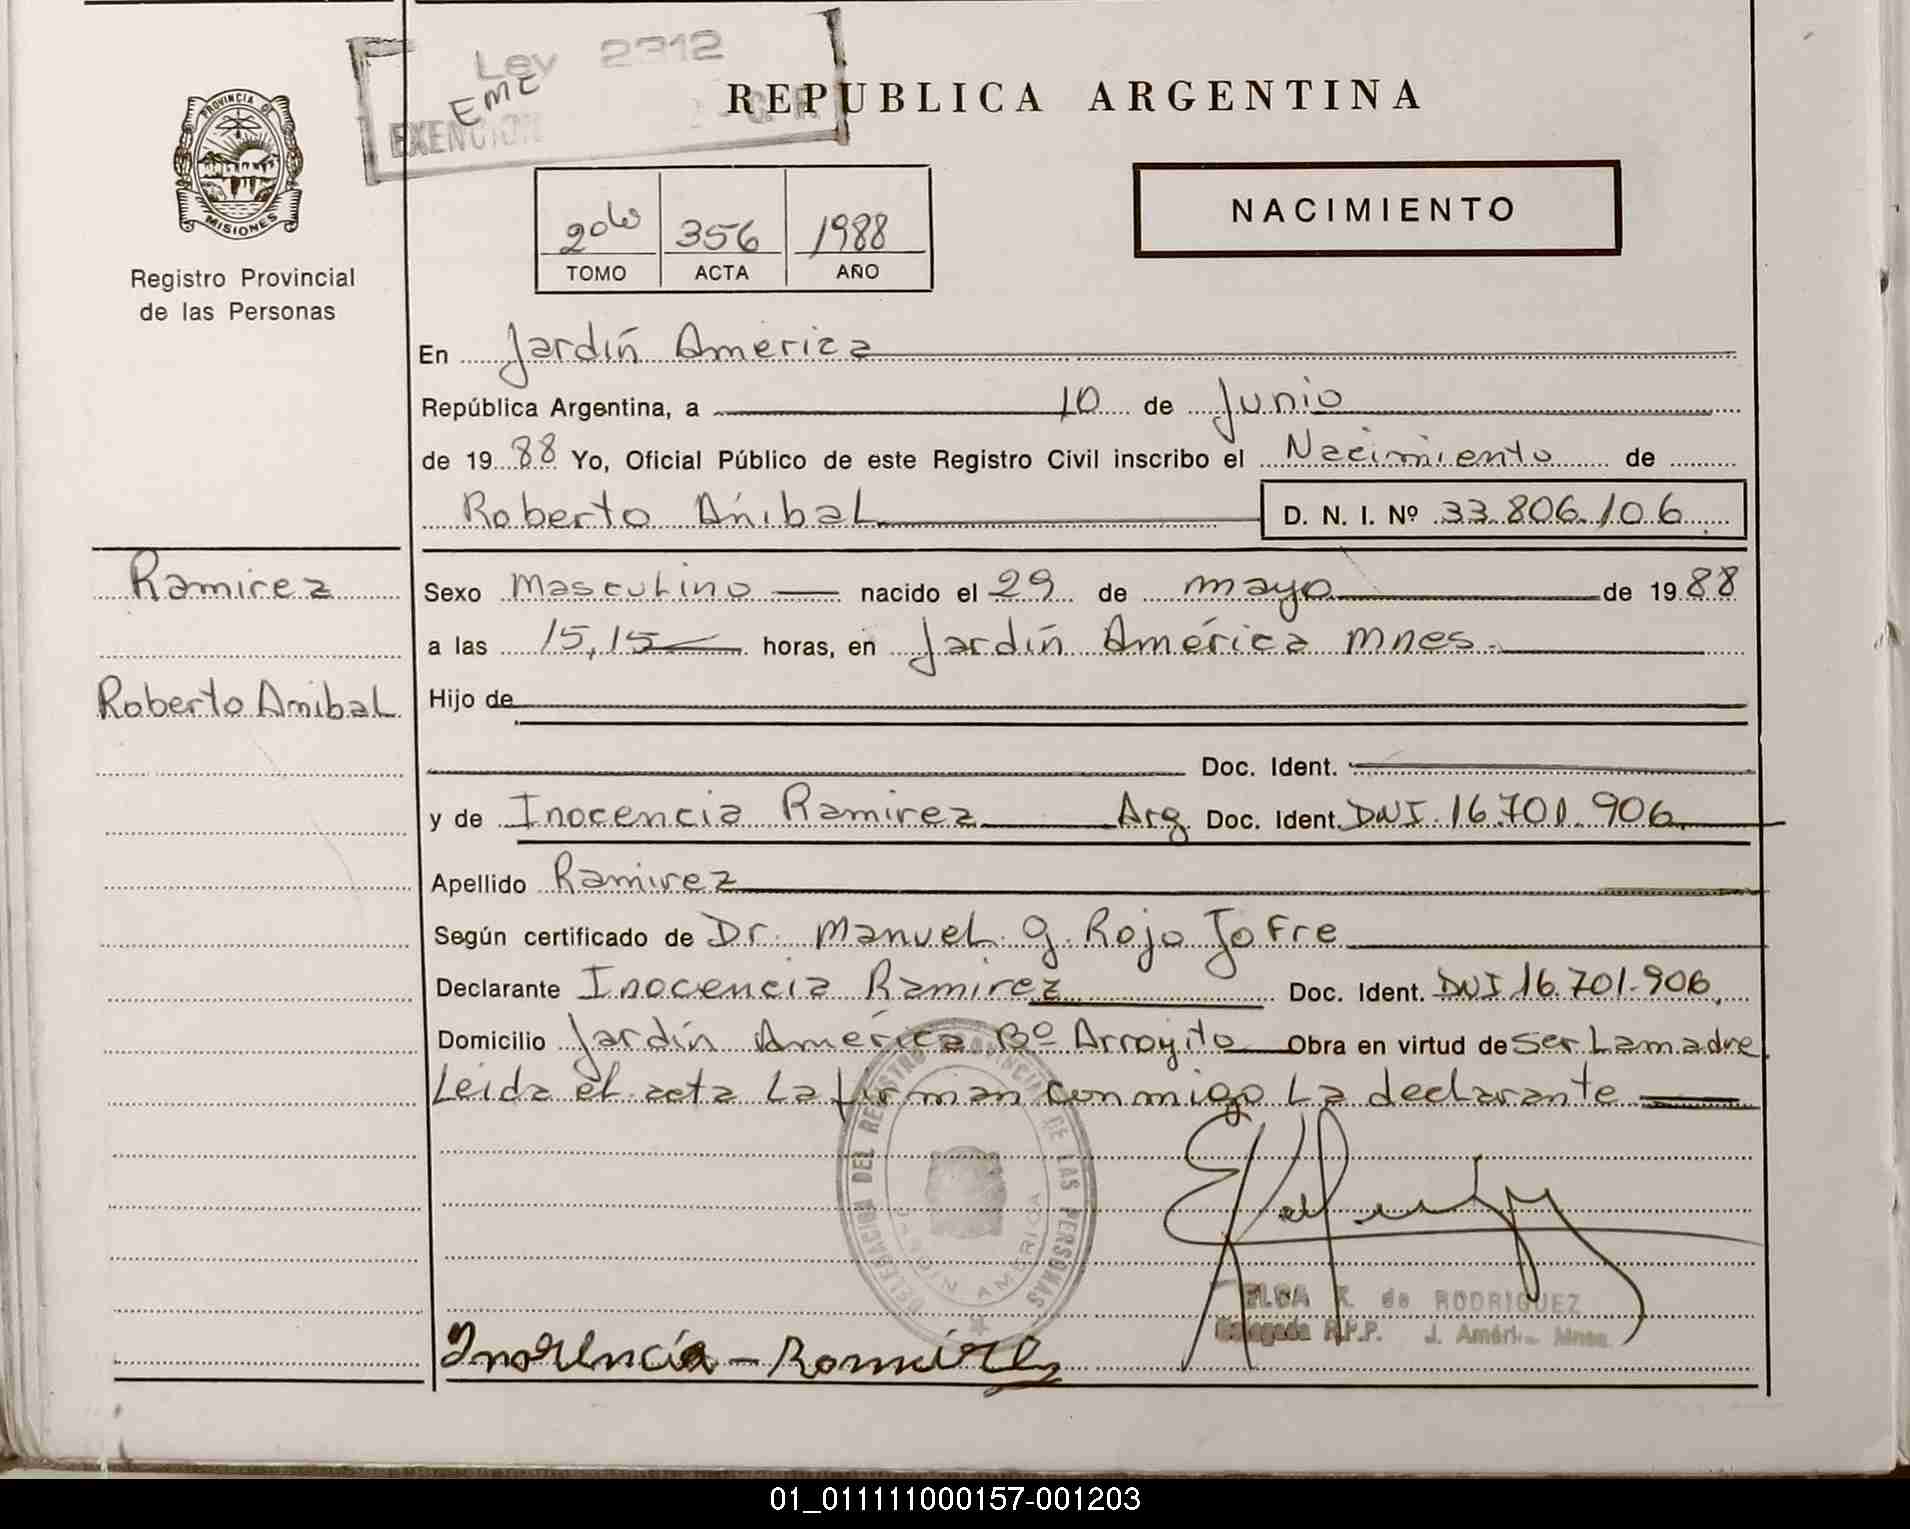 Ley 2312
EME
EXENCION
REPUBLICA ARGENTINA
PROVINCIA DE
MISIONES
NACIMIENTO
2do 356 1988
TOMO ACTA AÑO
Registro Provincial
de las Personas
En Jardín América
República Argentina, a 10 de Junio
de 1988 Yo, Oficial Público de este Registro Civil inscribo el Nacimiento de
Roberto Aníbal D. N. I. Nº 33.806.106
Ramirez
Sexo Masculino nacido el 29 de mayo de 1988
a las 15,15 horas, en Jardín América mnes.
Roberto Anibal
Hijo de
Doc. Ident.
y de Inocencia Ramirez Arg. Doc. Ident. DNI. 16.701.906
Apellido Ramirez
Según certificado de Dr. Manuel G. Rojo Jofre
Declarante Inocencia Ramirez Doc. Ident. DNI 16.701.906
Domicilio Jardín América Bº Arroyito Obra en virtud de Ser La madre
Leida el acta La firman conmigo La declarante
DELEGACION DEL REGISTRO PROVINCIAL DE LAS PERSONAS
JARDIN AMERICA
ELBA K. de RODRIGUEZ
Delegada R.P.P. J. América Mnes.
Inocencia - Ramirez
01_011111000157-001203